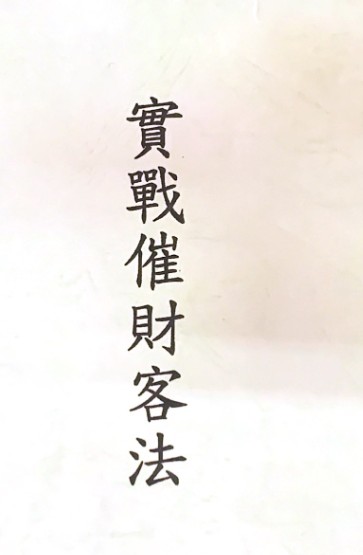 實戰催財客法